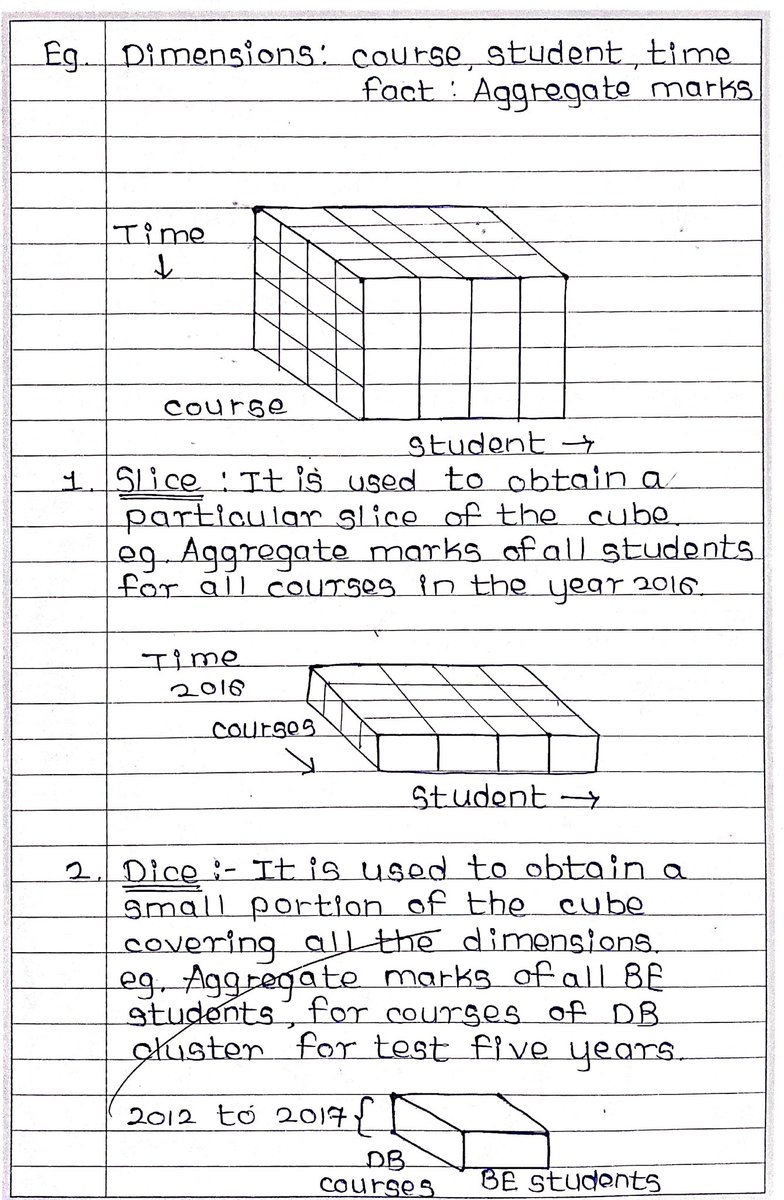 Eg. Dimensions: course, student, time
fact : Aggregate marks
Time
↓
course
student →
1. Slice : It is used to obtain a
particular slice of the cube.
eg. Aggregate marks of all students
for all courses in the year 2016.
Time
2016
courses
↘
Student →
2. Dice :- It is used to obtain a
small portion of the cube
covering all the dimensions.
eg. Aggregate marks of all BE
students, for courses of DB
cluster for test five years.
2012 to 2017 {
DB
courses
BE students